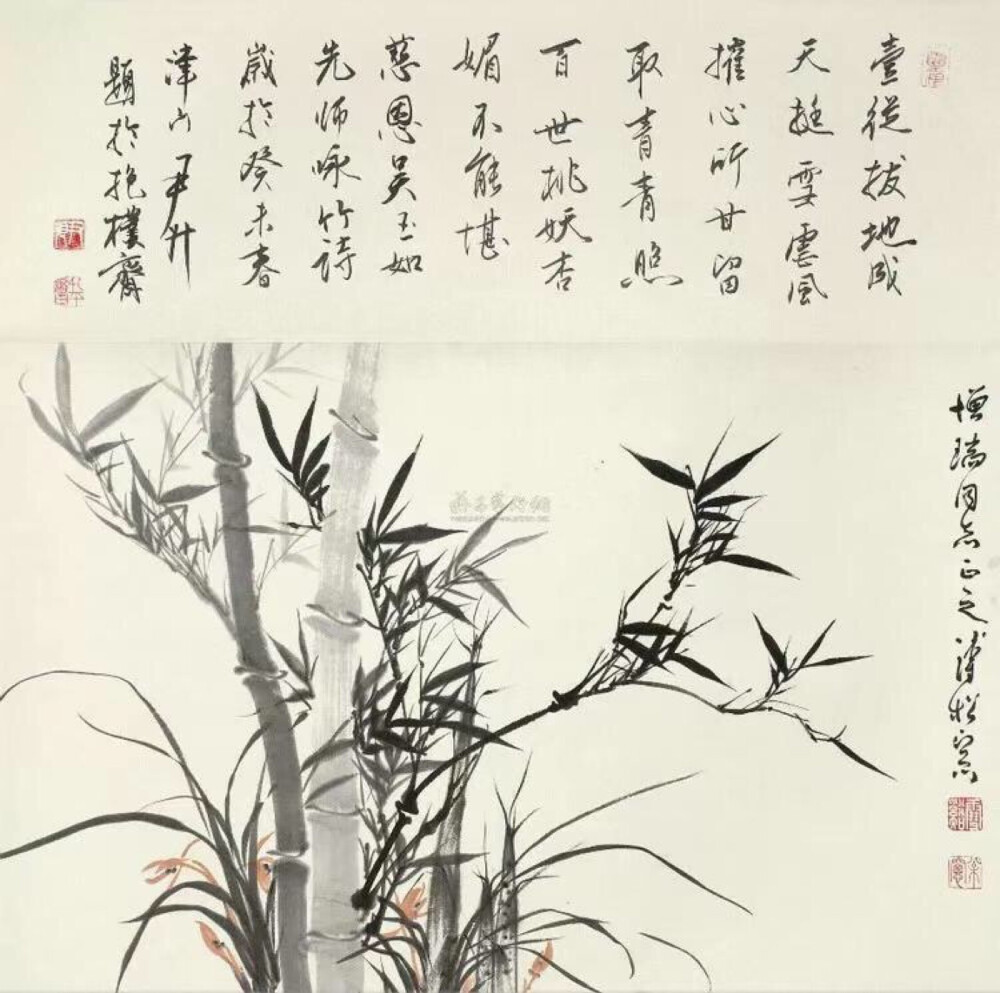 壹從拔地成
天挺雪虐風
摧心所甘留
取青青照
百世桃妖杏
媚不能堪
慈恩吴玉如
先师咏竹詩
歲於癸未春
津门尹升
題於抱樸齋
增瑞同志正之